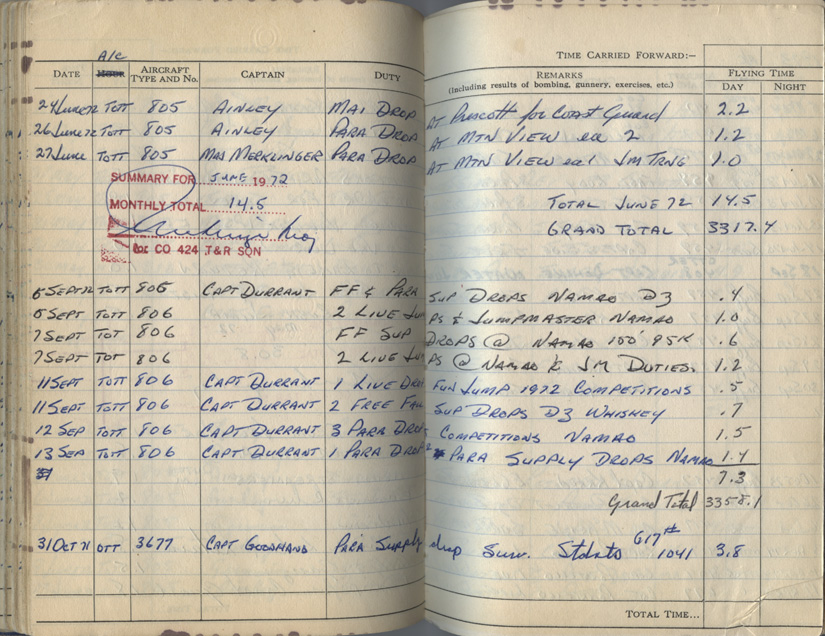 TIME CARRIED FORWARD:—
A/c
DATE HOUR AIRCRAFT TYPE AND No. CAPTAIN DUTY REMARKS (Including results of bombing, gunnery, exercises, etc.) FLYING TIME DAY NIGHT
24 June 72 TOTT 805 AINLEY MAI DROP AT Prescott for Coast Guard 2.2
26 June 72 TOTT 805 AINLEY PARA DROP AT MTN VIEW ea 2 1.2
27 June TOTT 805 MAJ MERKLINGER PARA DROP AT MTN VIEW ea 1 JM TRNG 1.0
SUMMARY FOR JUNE 1972
MONTHLY TOTAL 14.5 TOTAL JUNE 72 14.5
GRAND TOTAL 3317.4
Maj
for CO 424 T&R SQN
5 SEPT 72 TOTT 806 CAPT DURRANT FF & PARA SUP DROPS NAMAO DZ .4
6 SEPT TOTT 806 2 LIVE JUMPS & JUMPMASTER NAMAO 1.0
7 SEPT TOT 806 FF SUP DROPS @ NAMAO 100' 95K .6
7 SEPT TOT 806 2 LIVE JUMPS @ NAMAO & JM DUTIES. 1.2
11 SEPT TOTT 806 CAPT DURRANT 1 LIVE DROP FUN JUMP 1972 COMPETITIONS .5
11 SEPT TOTT 806 CAPT DURRANT 2 FREE FALL SUP DROPS DZ WHISKEY .7
12 SEP TOTT 806 CAPT DURRANT 3 PARA DROPS COMPETITIONS NAMAO 1.5
13 SEP TOTT 806 CAPT DURRANT 1 PARA DROP 2 PARA SUPPLY DROPS NAMAO 1.4
7.3
Grand Total 3358.1
617#
31 OCT 71 OTT 3677 CAPT GOODHAND Para Supply drop Surv. 1041 3.8
TOTAL TIME...